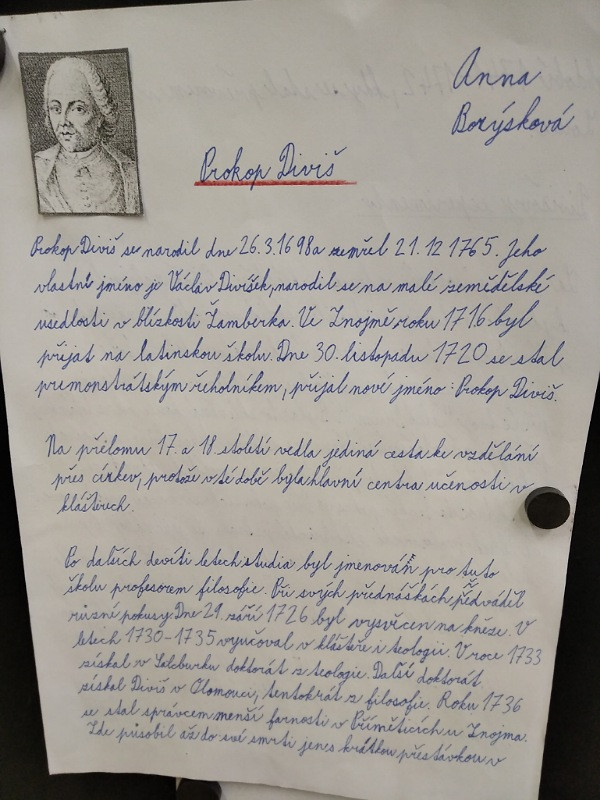 Anna
Borýsková
Prokop Diviš
Prokop Diviš se narodil dne 26.3.1698 a zemřel 21.12 1765. Jeho
vlastní jméno je Václav Divíšek, narodil se na malé zemědělské
usedlosti v blízkosti Žamberka. Ve Znojmě roku 1716 byl
přijat na latinskou školu. Dne 30. listopadu 1720 se stal
premonstrátským řeholníkem, přijal nové jméno: Prokop Diviš.
Na přelomu 17. a 18. století vedla jediná cesta ke vzdělání
přes církev, protože v té době byla hlavní centra učenosti v
klášterech.
Po dalších devíti letech studia byl jmenován pro tuto
školu profesorem filosofie. Při svých přednáškách předváděl
různé pokusy. Dne 29. září 1726 byl vysvěcen na kněze. V
letech 1730-1735 vyučoval v klášteře i teologii. V roce 1733
získal v Salcburku doktorát z teologie. Další doktorát
získal Diviš v Olomouci, tentokrát z filosofie. Roku 1736
se stal správcem menší farnosti v Příměticích u Znojma.
Zde působil až do své smrti jen s krátkou přestávkou v